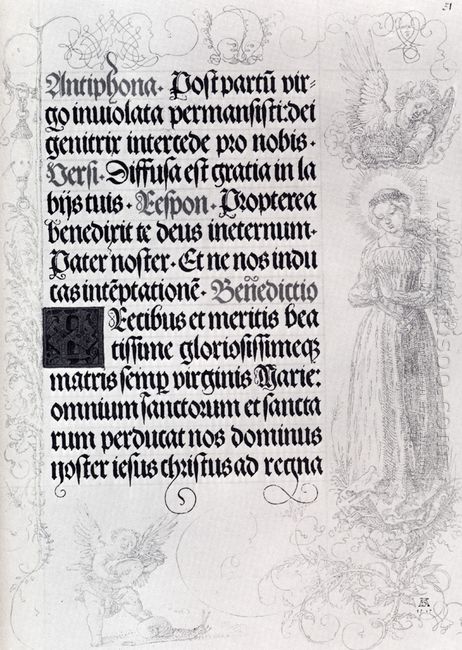 51
Antiphona · Post partū vir-
go inuiolata permansisti: dei
genitrix intercede pro nobis ·
Versi · Diffusa est gratia in la
bijs tuis · Respon · Propterea
benedixit te deus ineternum ·
Pater noster · Et ne nos indu
cas intēptationē · Beñedictio
PRecibus et meritis bea
tissime gloriosissimeqꝫ
matris semꝑ virginis Marie:
omnium sanctorum et sancta
rum perducat nos dominus
noster iesus christus ad regna
AD